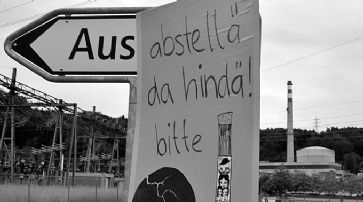 Aus
abstellä
da hindä!
bitte